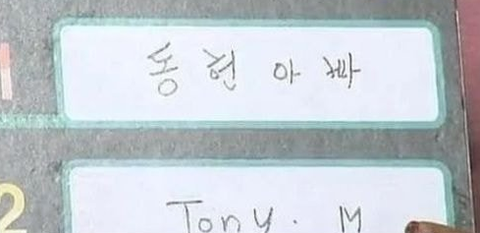 1 동현 아빠
2 Tony. M